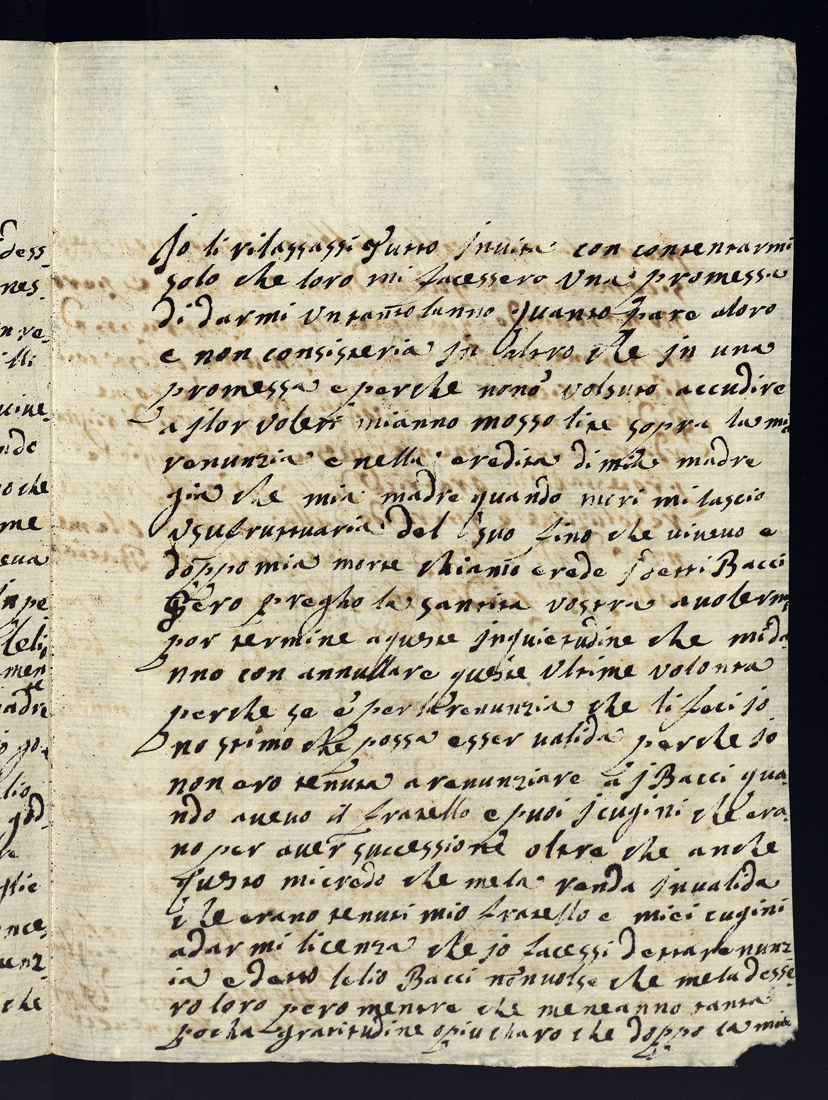 Jo li rilassassi tutto in vita con contentarmi
solo che loro mi facessero una promessa
di darmi un tanto lanno quanto pare aloro
e non consisteria in altro che in una
promessa e perche nonò volsuto accudire
a i lor voleri mianno mosso lite sopra la mi
renunzia e nella eredita di mia madre
gia che mia madre quando mori mi lascio
usufruttuaria del suo fino che vivevo e
doppo mia morte chiamò erede i detti Bacci
pero pregho la santita vostra a volerm
por termine a queste inquietudine che mi da
nno con annullare queste ultime volonta
perche se è per la renunzia che li feci io
no stimo che possa esser valida perche io
non ero tenuta a renunziare a i Bacci qua
ndo avevo il fratello e puoi i cugini che era
no per aver successione oltre che anche
questo mi credo che me la renda invalida
che erano tenuti mio fratello e miei cugini
a darmi licenza che io facessi detta renunz
ia e detto lelio Bacci non volse che me la desse
ro loro pero mentre che me neanno tanta
pocha gratitudine o piu charo che doppo la mia
dess
nes
nve
illi
uive
nde
o che
me
eva
inpe
leli
men
te
adre
go
lio
god
re
nce
unz
che